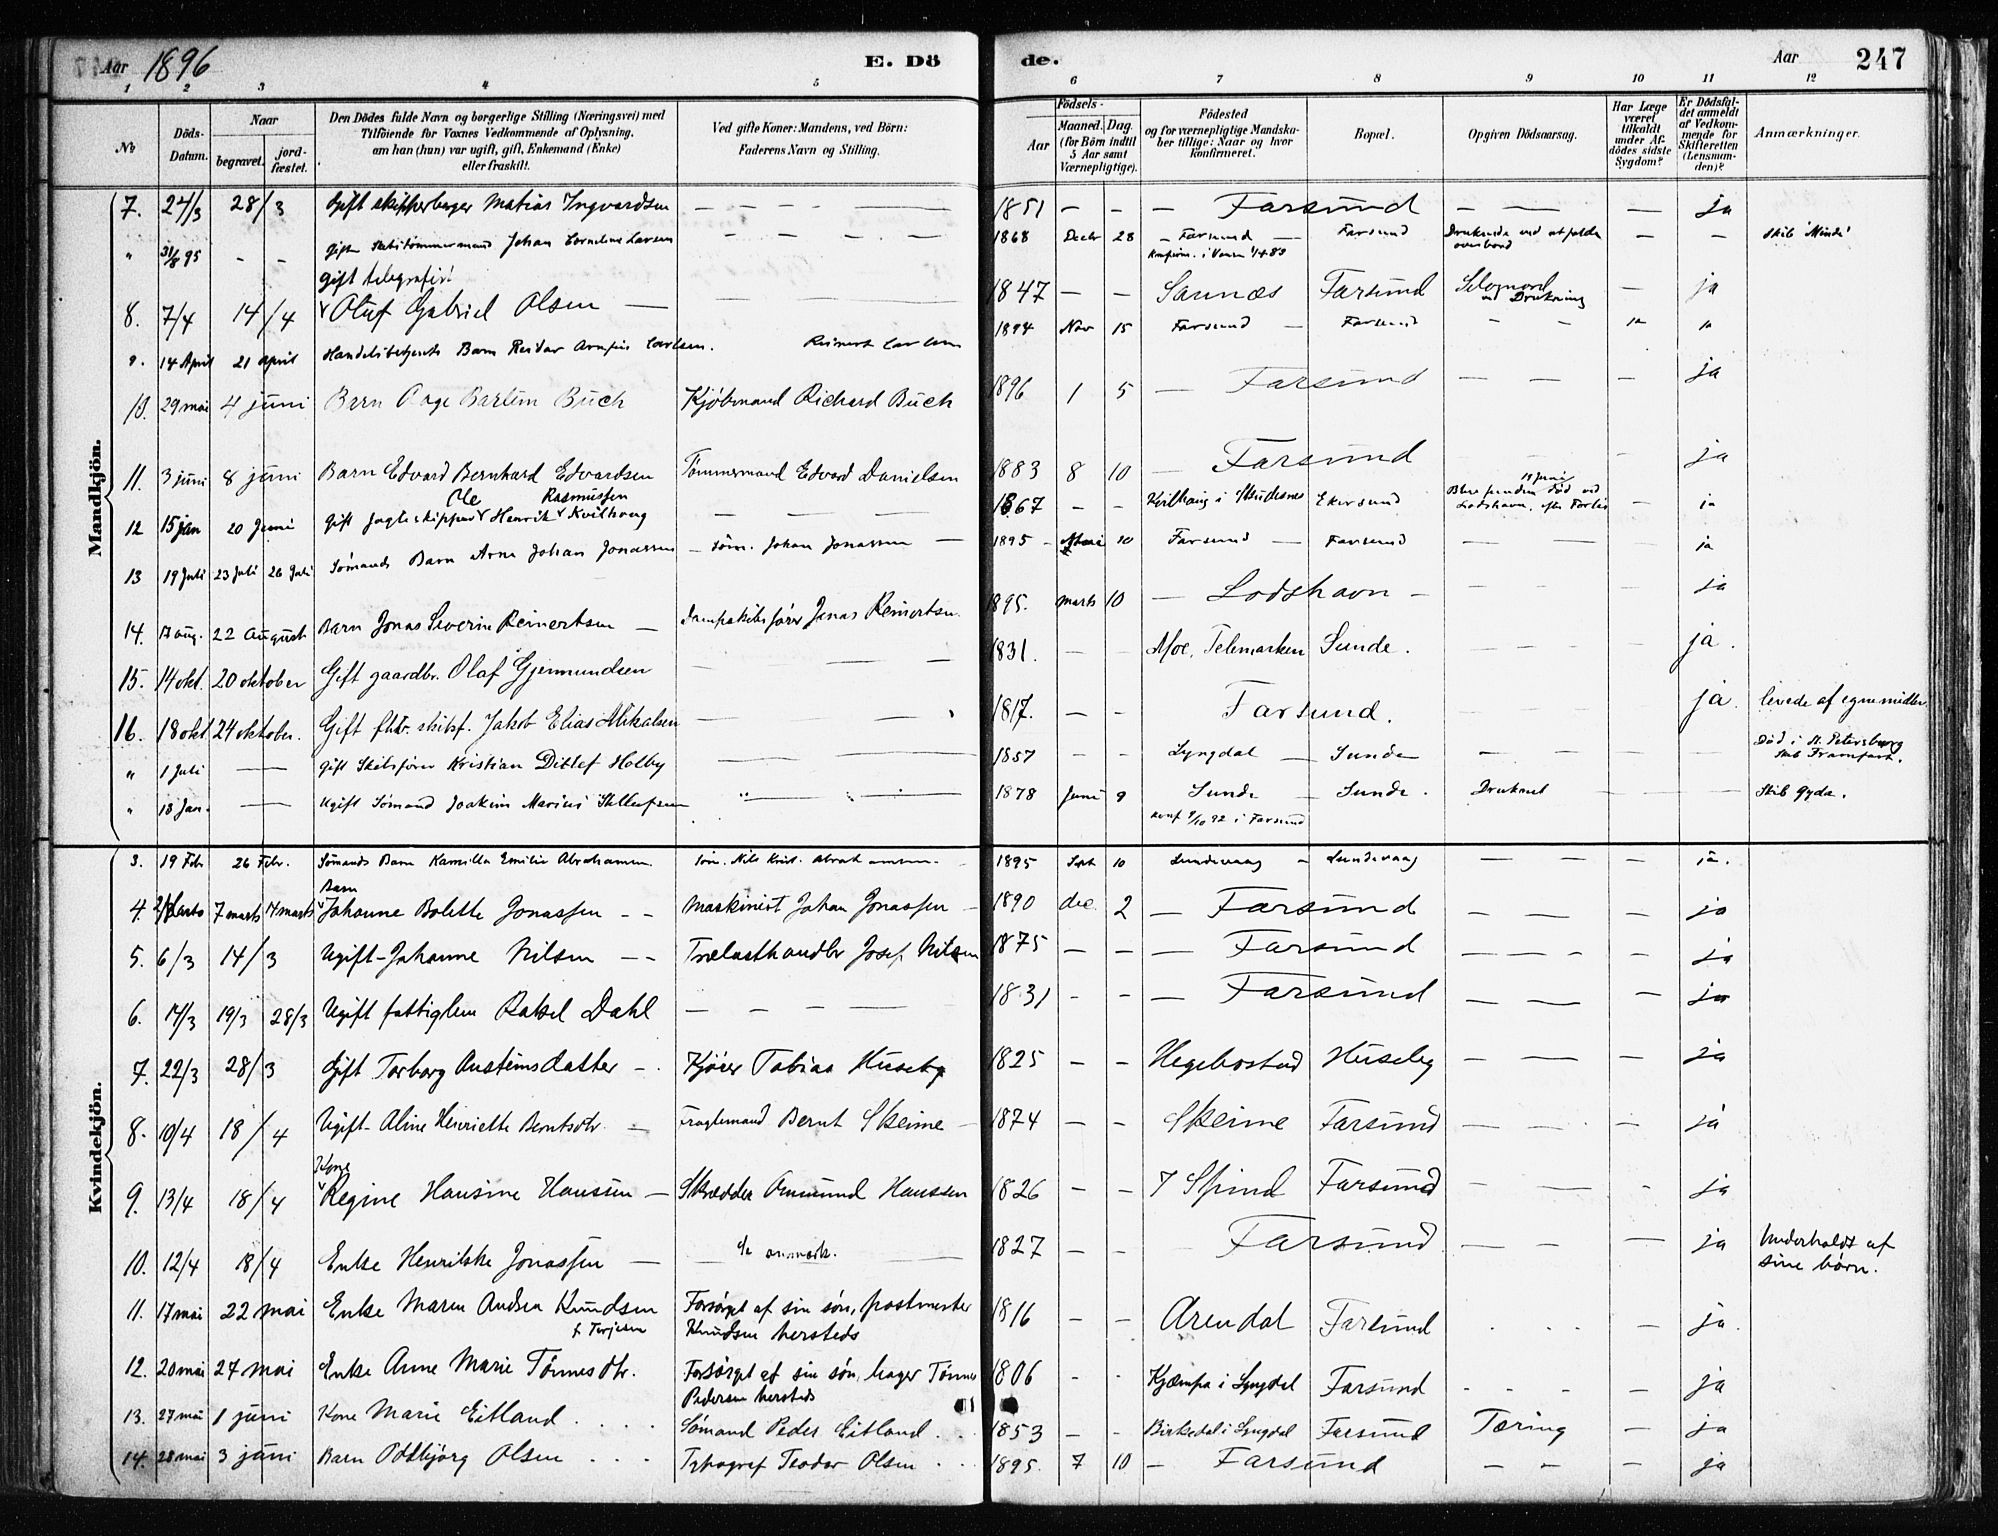 Aar 1896 E. Dö de. Aar 247
1 2 3 4 5 6 7 8 9 10 11 12
No Döds-Datum. Naar begravet. jord-fæstet. Den Dödes fulde Navn og borgerlige Stilling (Næringsvei) med Tilföiende for Voxnes Vedkommende af Oplysning, om han (hun) var ugift, gift, Enkemand (Enke) eller fraskilt. Ved gifte Koner: Mandens, ved Börn: Faderens Navn og Stilling. Födsels- Aar Maaned. Dag. (for Börn indtil 5 Aar samt Værnepligtige). Födested og for værnepligtige Mandska-ber tillige: Naar og hvor konfirmeret. Bopæl. Opgiven Dödsaarsag. Har Læge været tilkaldt under Af-dödes sidste Sygdom? Er Dödsfal-det anmeldt af Vedkom-mende for Skifteretten (Lensman-den)? Anmærkninger.
Mandkjön.
7. 24/3 28/3 Gift skipperborger Matias Ingvardsen — — 1851 — — — Farsund — — — ja
" 31/8 95 - - Gift Skibstømmermand Johan Cornelius Larsen — — 1868 Decbr 28 — Farsund — Farsund Druknede ved at falde overbord — — Skib "Minde"
konfirm. i Vanse 14 83
8. 7/4 14/4 Gift telegrafist Oluf Gabriel Olsen — — 1847 — — Farsund ja
ved Drukning
9. 14 April 21 April Handelsbetjents Barn Reidar Arnfin Carlsen. Reinert Carlsen 1894 Nov 15 Farsund — Farsund - - ja ja
10. 29 mai 4 juni Barn Aage Bartim Buch Kjøbmand Richard Buch 1896 1 5 — Farsund — — — ja
11. 3 juni 8 juni Barn Edvard Bernhard Edvardsen Tømmermand Edvard Danielsen 1883 8 10 — Farsund — ja
12 15 jan 20 Juni Gift Jagteskipper Ole Henrik Rasmussen Kvilhaug — — 1867 - - Kvilhaug i Skudesnes Ekersund 19 Juni Blev funden død ved Lodshavn, efter Forlis — ja
13 19 Juli 23 Juli 26 Juli Sømands Barn Arne Johan Jonassen — Søm. Johan Jonassen — 1895 - Mai 10 Farsund — Farsund — — — ja
14. 17 aug. 22 August Barn Jonas Severin Reinertsen — Dampskibsfører Jonas Reinertsen. 1895. Marts 10 — Lodshavn - — — ja
15. 14 okt. 20 oktober Gift gaardbr. Olaf Gjermundsen — — 1831. - - Moe, Telemarken Sunde. - - - - ja.
16. 18 okt 24 oktober. Gift fhv. skibsf. Jakob Elias Mikalsen — — 1817. — — Farsund. ja. levede af egne midler
" 1 Juli — Gift Skibsfører Kristian Ditlef Holby — 1857 - - Lyngdal — Sunde — — — Død i St. Petersburg
Skib Framfart.
" 18 Jan. — Ugift Sømand Joakim Marius — — 1878 Juni 9 Sunde — Sunde. Druknet — — Skib Gyda.
konf 9/10 92 i Farsund
Kvindekjön.
3. 19 Febr 26 Febr. Sømands Barn Kamilla Emilie Abrahamsen. Søm. Nils Krist. Abrahamsen - 1895 Sept 10 Lundevaag — Lundevaag — — — ja.
4. 2 Marts 7 marts 14 marts Barn Johanne Bolette Jonassen - - Maskinist Johan Jonassen - 1890 dec. 2 — Farsund — — — ja
5. 6/3 14/3 Ugift-Johanne Nilsen - - Trælasthandler Josef Nilsen 1875 — — — Farsund — — — ja
6. 14/3 19/3 28/3 Ugift fattiglem Rakel Dahl — — — — 1831 - - — Farsund — — — ja
7. 22/3 28/3 Gift Torborg Austeinsdatter — Kjører Tobias Huseby 1825 — — Hegebostad Huseby — — — ja
8. 10/4 18/4 Ugift- Aline Henriette Berntsdtr. — Fragtemand Bernt Skeime — 1874 — — Skeime Farsund — — — ja
9. 13/4 18/4 Kone Regine Hansine Hansen — Skrædder Ommund Hanssen 1826 — — Spind Farsund — — — ja
10. 12/4 18/4 Enke Henrikke Jonassen — cfr anmærk. — 1827 — — Farsund — — — ja Underholdt af
sine børn.
11. 17 mai 22 mai Enke Maren Andrea Knudsen f. Terjesen Forsørget af sin søn, postmester Knudsen hersteds 1816 — — Arendal Farsund — ja.
12. 20 mai 27 mai Enke Anne Marie Tönnesdtr. Forsørget af sin søn, bager Tönnes Pedersen hersteds 1806 - - Kjæmpa i Lyngdal Farsund - - - — ja
13. 27 mai 1 juni Kone Marie Eitland. . . . Sømand Peder Eitland. . . 1853 — — Birkedal i Lyngdal Farsund Tæring — ja
14. 28 mai 3 juni Barn Oddbjørg Olsen . . . Typograf Teodor Olsen . . . 1895. 7 10 — Farsund — — — ja